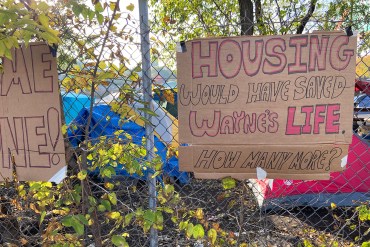 ME
NE!
HOUSING
WOULD HAVE SAVED
WAYNE'S LIFE.
HOW MANY MORE?